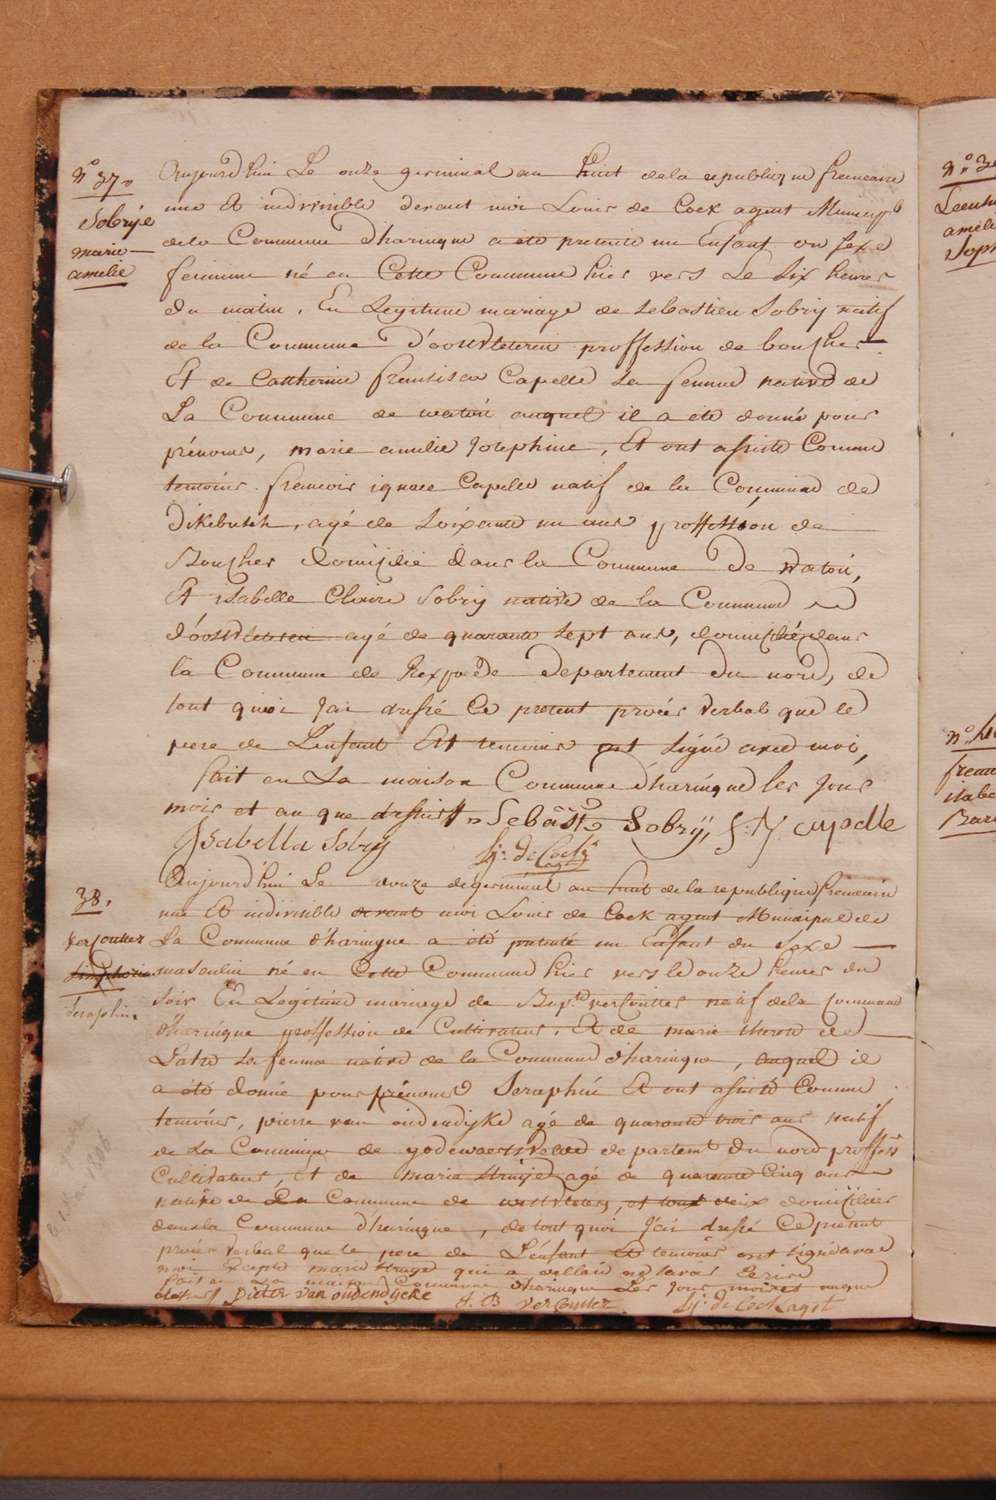 N° 37
Sobrije
marie
amelie
Aujourd'hui Le onze germinal an huit de la republique francaise
une Et indivisible devant moi Louis de Cock agent Municip
de la Commune d'haringue a eté presenté un Enfant du sexe
feminin né en Cette Commune hier vers Le six heures
du matin, En Legitime mariage de Sebastien Sobrij natif
de la Commune d'oostvleteren proffession de boucher
Et de Catherine francisca Capelle sa femme native de
La Commune de watoü auquel il a eté donné pour
prénoms, marie amelie Josephine, Et ont assisté Comme
temoins francois ignace Capelle natif de la Commune de
Dikebusch, agé de soixante un ans proffession de
Boucher domicilié dans la Commune De watoü,
Et isabelle Claire Sobrij native de la Commune
d'oostvleteren agé de quarante sept ans, domiciliée dans
la Commune de Rexpoede Departement du nord, de
tout quoi J'ai dressé Ce present procès verbal que le
pere de L'enfant Et temoins ont signé avec moi,
fait en La maison Commune d'haringue les Jour
mois et an que dessus Sebâst Sobrÿ, f: J capelle
Isabella Sobrÿ Lj: de Cock agt
38.
vercoutter
simphorin
seraphin
Aujourd'hui Le douze de germinal an huit de la republique francaise
une Et indivisible devant moi Louis de Cock agent Municipal de
La Commune d'haringue a eté presenté un Enfant du sexe
masculin né en Cette Commune hier vers le onze heures du
soir En Legitime mariage de Bapte vercoutter natif de la commune
d'haringue proffession de Cultivateur, Et de marie therese de
Latre sa femme native de la Commune d'haringue, auquel il
a eté donné pour prénoms Seraphin Et ont assisté Comme
temoins, pierre van oudendijke agé de quarante trois ans natif
de La Commune de godewaersvelde departemt du nord proffesn
Cultivateur, Et de marie Struije agé de quarante Cinq ans
native de La Commune de westvleteren, et tous deux domiciliés
dans la Commune d'haringue, de tout quoi J'ai dressé Ce present
procès verbal que le pere de L'enfant Et temoins ont signé avec
moi Excepté marie Struye qui a declaré ne savoir Ecrire
fait en La maison Commune d'haringue Les Jour mois et an que
dessus pieter van oudendijcke J. B vercoutter Lj: de Cock agt
N° 3
amelie
Soph
N° 40